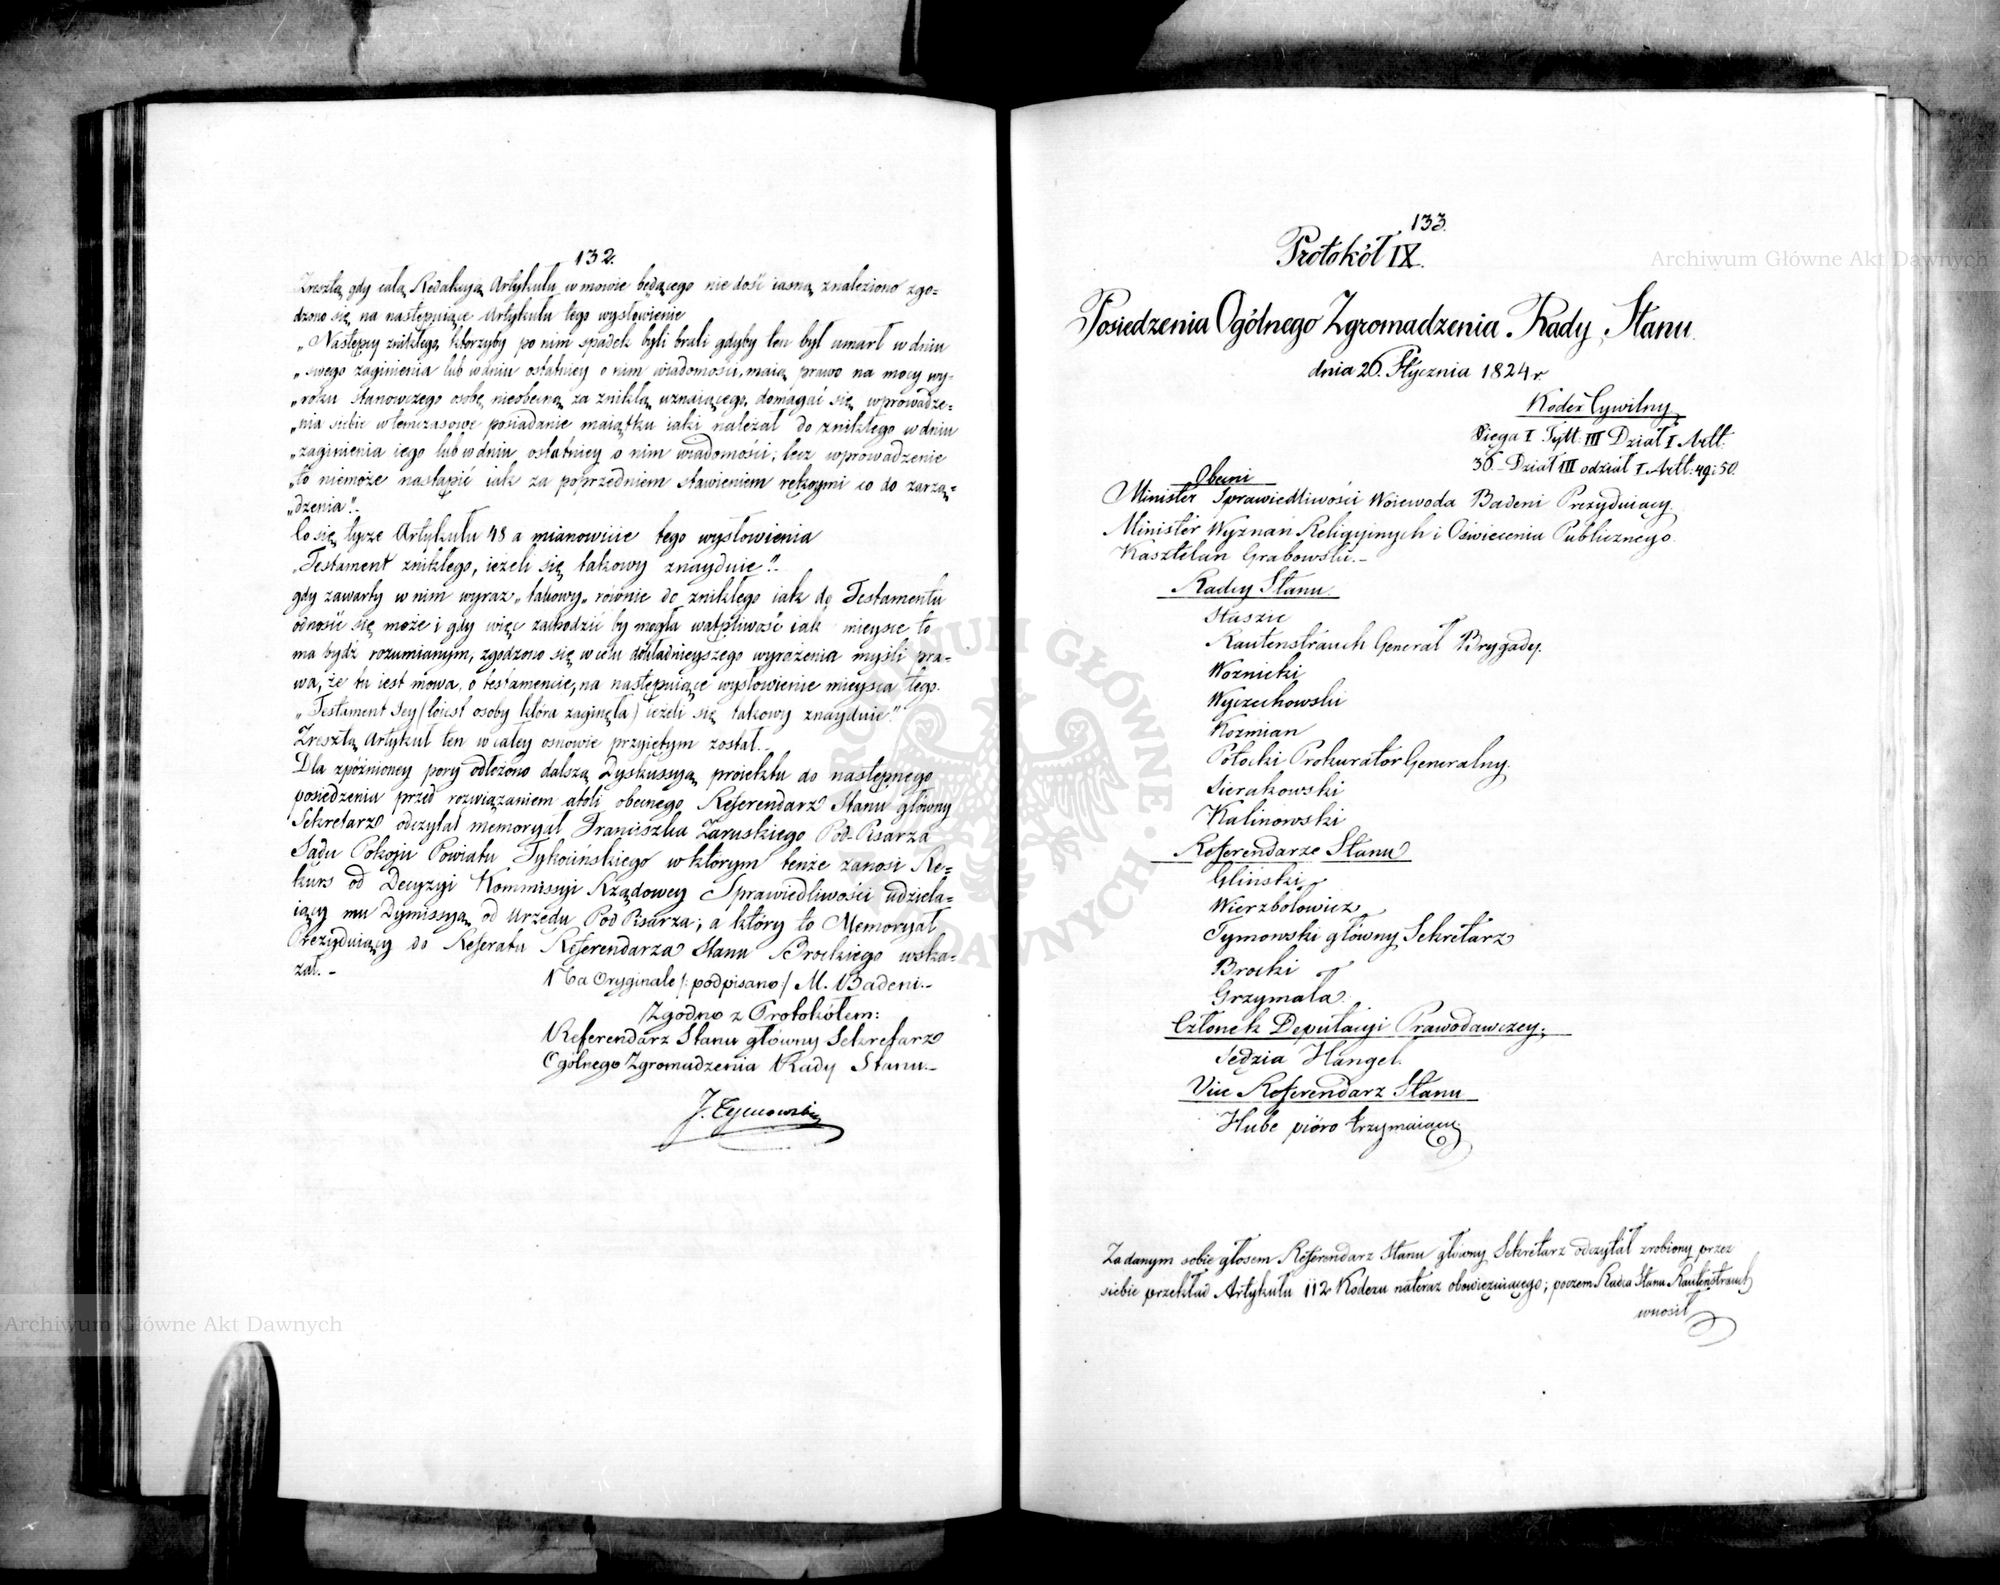 132.
Zresztą gdy całą Redakcyą Artykułu w mowie będącego nie dość iasną znaleziono zgo=
dzono się na następuiące Artykułu tego wysłowienie
„Następcy znikłego, którzyby po nim spadek byli brali gdyby ten był umarł w dniu
„swego zaginienia lub w dniu ostatniey o nim wiadomości, maią prawo na mocy wy=
„roku stanowczego osobę nieobecną za znikłą uznaiącego, domagać się wprowadze=
„nia siebie w temczasowe posiadanie maiątku iaki należał do znikłego w dniu
„zaginienia iego lub w dniu ostatniey o nim wiadomości; lecz wprowadzenie
„to niemoże nastąpić iak za poprzedniem stawieniem rękoymi co do zarzą=
„dzenia".-
Co się tycze Artykułu 48 a mianowicie tego wysłowienia
„Testament znikłego, ieżeli się takowy znayduie".-
gdy zawarty w nim wyraz „takowy„ równie do znikłego iak do Testamentu
odnosić się może i gdy więc zachodzić by mogła wątpliwość iak mieysce to
ma bydź rozumianym, zgodzono się w celu dokładnieyszego wyrażenia myśli pra=
wa, że tu iest mowa o testamencie, na następuiące wysłowienie mieysca tego.
„Testament Jey (toiest osoby która zaginęła) ieżeli się takowy znayduie".
Zresztą Artykuł ten w całey osnowie przyiętym został.-
Dla spóźnioney pory odłożono dalszą Dyskussyą proiektu do następnego
posiedzenia przed rozwiązaniem atoli obecnego, Referendarz Stanu główny
Sekretarz odczytał memoryał Franciszka Zaruskiego Pod-Pisarza
Sądu Pokoju Powiatu Tykocińskiego w którym tenże zanosi Re=
kurs od Decyzyi Kommissyi Rządowey Sprawiedliwości udziela=
iący mu Dymissyą od Urzędu Pod Pisarza; a który to Memoryał
Prezyduiący do Referatu Referendarza Stanu Brockiego wska=
zał.-
Na Oryginale /: podpisano:/ M. Badeni.-
Zgodno z Protokółem:
Referendarz Stanu główny Sekretarz
Ogólnego Zgromadzenia Rady Stanu.-
J. Tymowski
133.
Protokół IX.
Posiedzenia Ogólnego Zgromadzenia Rady Stanu.
dnia 26. Stycznia 1824 r.
Kodex Cywilny
Xięga I Tytł: III Dział I Artt.
36. Dział III odział I. Artt: 49 i 50.
Obecni
Minister Sprawiedliwości Woiewoda Badeni Prezyduiący.
Minister Wyznań Religiynych i Oświecenia Publicznego
Kasztelan Grabowski.-
Radcy Stanu.
Staszic
Rautenstrauch Generał Brygady.
Woźnicki
Wyczechowski
Koźmian
Potocki Prokurator Generalny.
Sierakowski
Kalinowski
Referendarze Stanu
Gliński
Wierzbołowicz
Tymowski główny Sekretarz
Brocki
Grzymała.
Członek Deputacyi Prawodawczey.
Sędzia Hangel.
Vice Referendarz Stanu
Hube pióro trzymaiący.
Za danym sobie głosem Referendarz Stanu główny Sekretarz odczytał zrobiony przez
siebie przekład Artykułu 112 Kodexu nateraz obowięzuiącego; poczem Radca Stanu Rautenstrauch
wnosił
Archiwum Główne Akt Dawnych
Archiwum Główne Akt Dawnych
ARCHIWUM GŁÓWNE AKT DAWNYCH